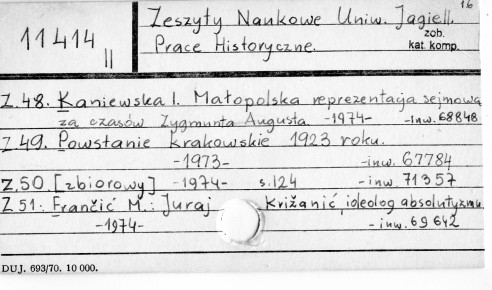 16
Zeszyty Naukowe Uniw. Jagiell.
11414 II
Prace Historyczne.
zob.
kat. komp.
Z.48. Kaniewska I. Małopolska reprezentacja sejmowa
za czasów Zygmunta Augusta -1974- -inw. 68848
Z 49. Powstanie krakowskie 1923 roku.
-1973- -inw. 67784
Z.50 [zbiorowy] -1974- s.124 -inw 71357
Z 51. Frančić M.: Juraj Križanić, ideolog absolutyzmu
-1974- -inw. 69642
DUJ. 693/70. 10 000.